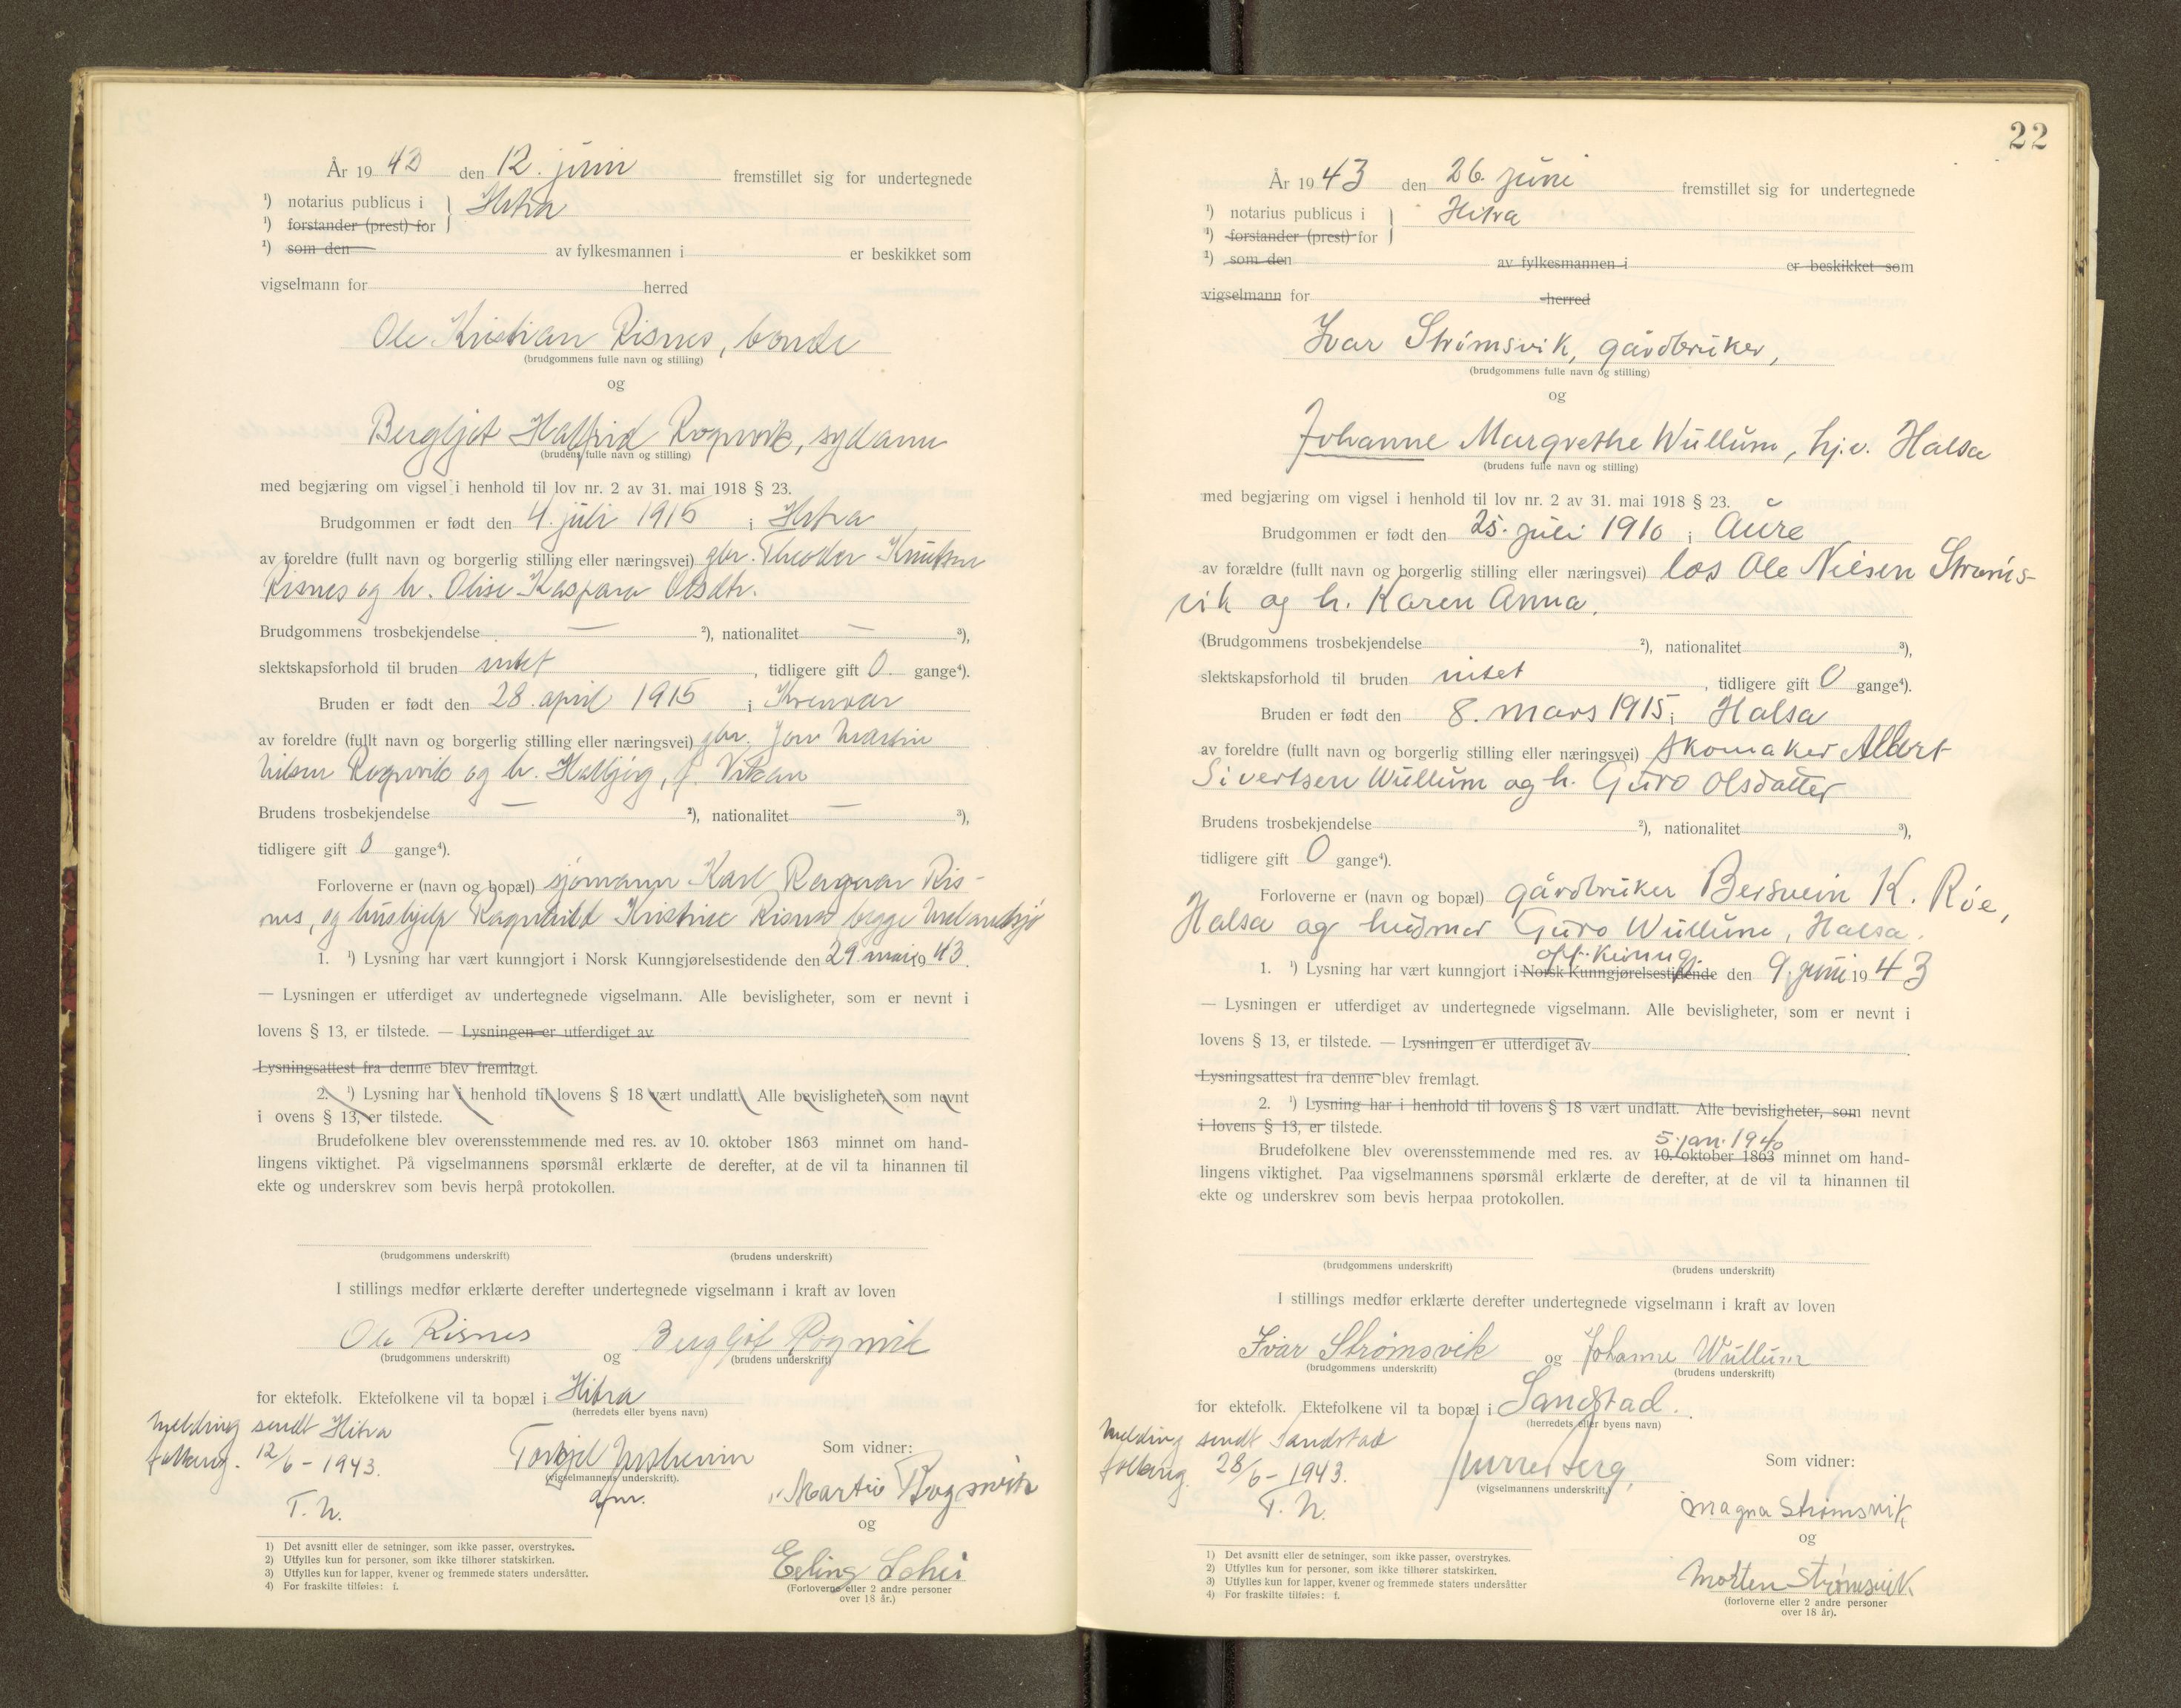 År 1942 den 12. juni fremstillet sig for undertegnede
¹) notarius publicus i Hitra
¹) forstander (prest) for
¹) som den av fylkesmannen i er beskikket som
vigselmann for herred
Ole Kristian Risnes, bonde
(brudgommens fulle navn og stilling)
og
Bergljot Halfrid Rognvik, sydame
(brudens fulle navn og stilling)
med begjæring om vigsel i henhold til lov nr. 2 av 31. mai 1918 § 23.
Brudgommen er født den 4. juli 1915 i Hitra
av foreldre (fullt navn og borgerlig stilling eller næringsvei) gbr. Theodor Knutsen
Risnes og h. Oline Kaspara Olsdtr.
Brudgommens trosbekjendelse — ²), nationalitet — ³),
slektskapsforhold til bruden intet, tidligere gift 0 gange⁴).
Bruden er født den 28. april 1915 i Kvenvær
av foreldre (fullt navn og borgerlig stilling eller næringsvei) gbr. Jon Martin
Nilsen Rognvik og h. Halbjørg, f. Vikan
Brudens trosbekjendelse — ²), nationalitet — ³),
tidligere gift 0 gange⁴).
Forloverne er (navn og bopæl) sjømann Karl Ragnar Ris-
nes, og hushjelp Ragnhild Kristine Risnes begge Melandsjø
1. ¹) Lysning har vært kunngjort i Norsk Kunngjørelsestidende den 29. mai 1943.
— Lysningen er utferdiget av undertegnede vigselmann. Alle bevisligheter, som er nevnt i
lovens § 13, er tilstede. — Lysningen er utferdiget av
Lysningsattest fra denne blev fremlagt.
2. ¹) Lysning har i henhold til lovens § 18 vært undlatt. Alle bevisligheter, som nevnt
i ovens § 13, er tilstede.
Brudefolkene blev overensstemmende med res. av 10. oktober 1863 minnet om hand-
lingens viktighet. På vigselmannens spørsmål erklærte de derefter, at de vil ta hinannen til
ekte og underskrev som bevis herpå protokollen.
(brudgommens underskrift) (brudens underskrift)
I stillings medfør erklærte derefter undertegnede vigselmann i kraft av loven
Ole Risnes og Bergljot Rognvik
(brudgommens underskrift) (brudens underskrift)
for ektefolk. Ektefolkene vil ta bopæl i Hitra
(herredets eller byens navn)
Melding sendt Hitra
folkereg. 12/6 - 1943.
T. N.
(vigselmannens underskrift).
Som vidner:
Martin Rognvik
og
Erling
(Forloverne eller 2 andre personer
over 18 år.)
1) Det avsnitt eller de setninger, som ikke passer, overstrykes.
2) Utfylles kun for personer, som ikke tilhører statskirken.
3) Utfylles kun for lapper, kvener og fremmede staters undersåtter.
4) For fraskilte tilføles: f.
22
År 1943 den 26. juni fremstillet sig for undertegnede
¹) notarius publicus i Hitra
¹) forstander (prest) for
¹) som den av fylkesmannen i er beskikket som
vigselmann for herred
Ivar Strømsvik, gårdbruker,
(brudgommens fulle navn og stilling)
og
Johanne Margrethe Wullum, hj.v. Halsa
(brudens fulle navn og stilling)
med begjæring om vigsel i henhold til lov nr. 2 av 31. mai 1918 § 23.
Brudgommen er født den 25. juli 1910 i Aure
av forældre (fullt navn og borgerlig stilling eller næringsvei) los Ole Nilsen Strøms-
vik og h. Karen Anna.
(Brudgommens trosbekjendelse ²), nationalitet ³),
slektskapsforhold til bruden intet, tidligere gift 0 gange⁴).
Bruden er født den 8. mars 1915 i Halsa
av foreldre (fullt navn og borgerlig stilling eller næringsvei) skomaker Albert
Sivertsen Wullum og h. Guro Olsdatter
Brudens trosbekjendelse ²), nationalitet ³),
tidligere gift 0 gange⁴).
Forloverne er (navn og bopæl) gårdbruker Bersvein K. Røe,
Halsa og husmor Guro Wullum, Halsa.
off. kunng.
1. ¹) Lysning har vært kunngjort i Norsk Kunngjørelsestidende den 9. juni 1943
— Lysningen er utferdiget av undertegnede vigselmann. Alle bevisligheter, som er nevnt i
lovens § 13, er tilstede. — Lysningen er utferdiget av
Lysningsattest fra denne blev fremlagt.
2. ¹) Lysning har i henhold til lovens § 18 vært undlatt. Alle bevisligheter, som nevnt
i lovens § 13, er tilstede.
5. jan. 1940
Brudefolkene blev overensstemmende med res. av 10. oktober 1863 minnet om hand-
lingens viktighet. Paa vigselmannens spørsmål erklærte de derefter, at de vil ta hinannen til
ekte og underskrev som bevis herpaa protokollen.
(brudgommens underskrift) (brudens underskrift)
I stillings medfør erklærte derefter undertegnede vigselmann i kraft av loven
Ivar Strømsvik og Johanne Wullum
(brudgommens underskrift) (brudens underskrift)
for ektefolk. Ektefolkene vil ta bopæl i Sandstad.
(herredets eller byens navn)
Melding sendt Sandstad
folkereg. 28/6 - 1943.
T. N.
(vigselmannens underskrift.)
Som vidner:
Magna Strømsvik
og
Morten Strømsvik
(forloverne eller 2 andre personer
over 18 år).
1) Det avsnitt eller de setninger, som ikke passer, overstrykes.
2) Utfylles kun for personer, som ikke tilhører statskirken.
3) Utfylles kun for lapper, kvener og fremmede staters undersåtter
4) For fraskilte tilføies: f.